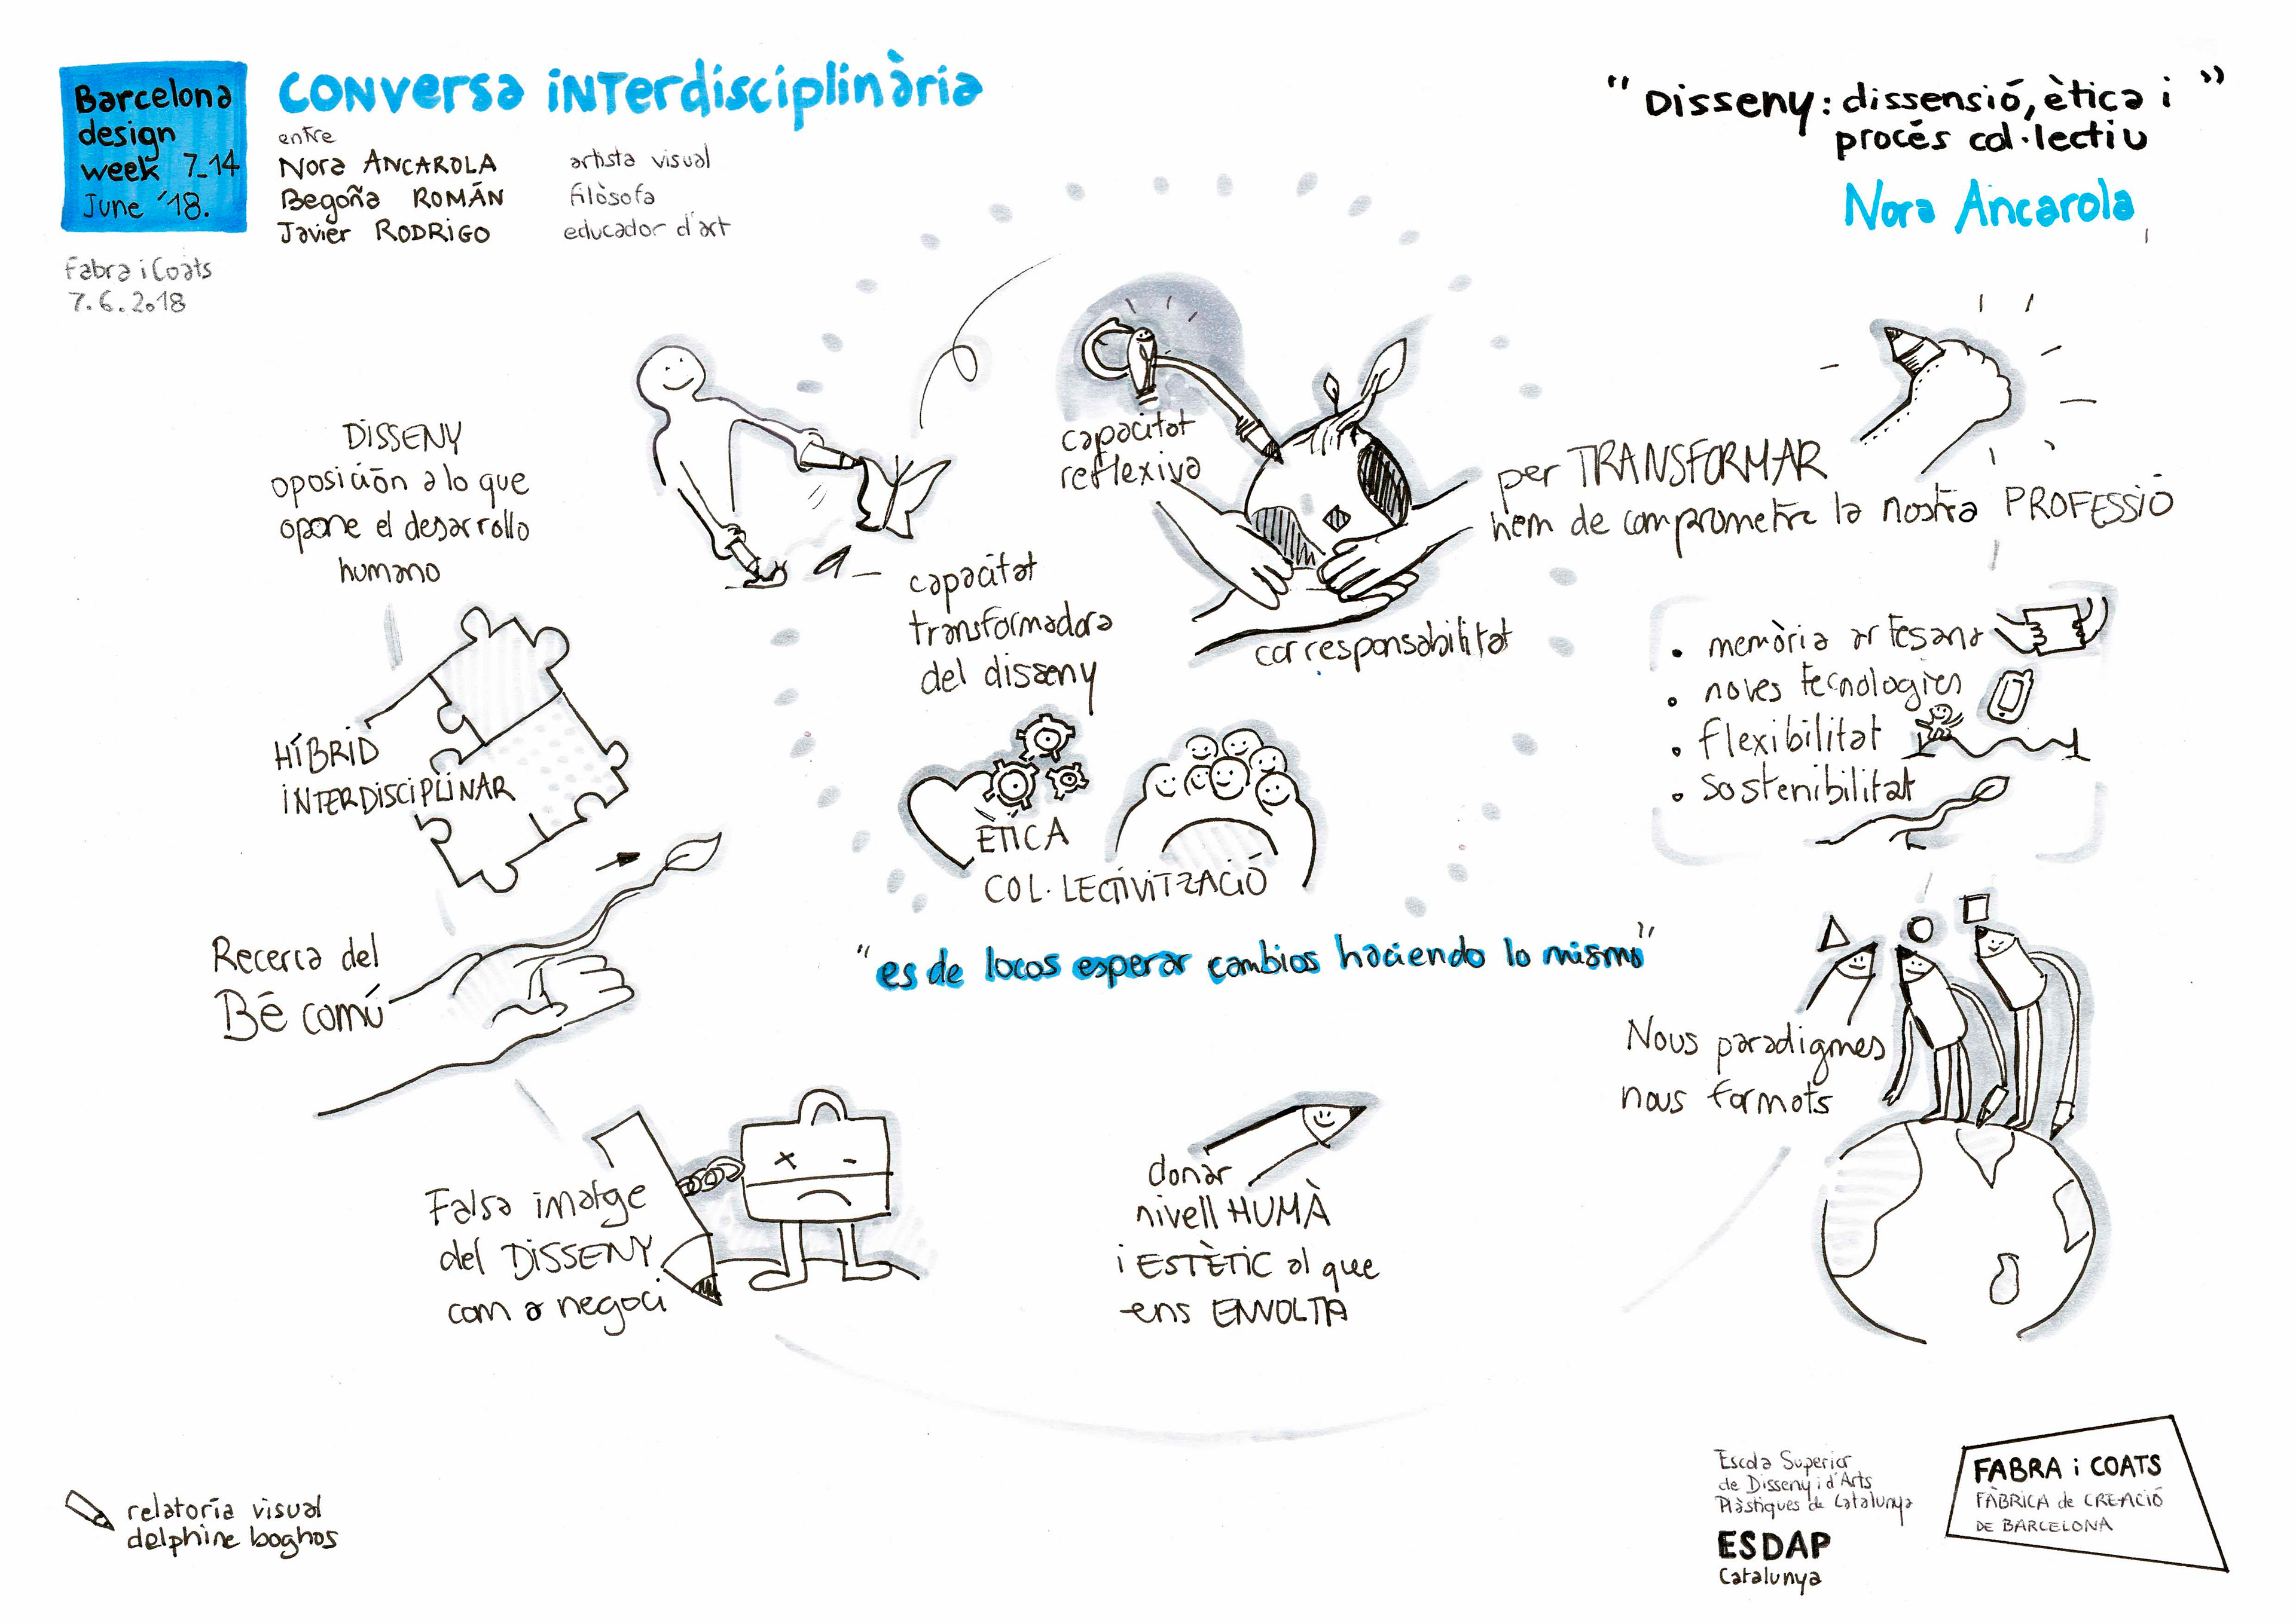 Barcelona
design
week 7_14
June '18.
Fabra i Coats
7.6.2018
CONVERSA INTERDISCIPLINÀRIA
entre
Nora ANCAROLA artista visual
Begoña ROMÁN filòsofa
Javier RODRIGO educador d'art
"Disseny: dissensió, ètica i"
procés col·lectiu
Nora Ancarola
DISSENY
oposición a lo que
opone el desarrollo
humano
HÍBRID
INTERDISCIPLINAR
Recerca del
Bé comú
Falsa imatge
del DISSENY
com a negoci
capacitat
transformadora
del disseny
capacitat
reflexiva
corresponsabilitat
ETICA
COL·LECTIVITZACIÓ
"es de locos esperar cambios haciendo lo mismo"
donar
nivell HUMÀ
i ESTÈTIC al que
ens ENVOLTA
per TRANSFORMAR
hem de comprometre la nostra PROFESSIÓ
• memòria artesana
• noves tecnologies
• flexibilitat
• sostenibilitat
Nous paradigmes
nous formats
relatoría visual
delphine boghos
Escola Superior
de Disseny i d'Arts
Plàstiques de Catalunya
ESDAP
Catalunya
FABRA i COATS
FÀBRICA de CREACIÓ
DE BARCELONA